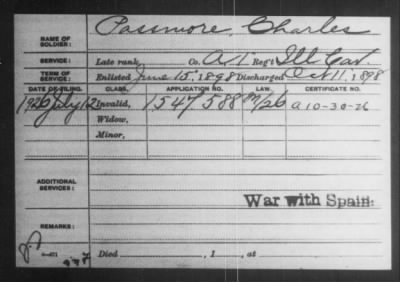 NAME OF SOLDIER: Passmore, Charles
SERVICE: Late rank, Co. A, 1 Reg't Ill Cav.
TERM OF SERVICE: Enlisted June 15, 1898 Discharged Oct 11, 1898
DATE OF FILING. CLASS. APPLICATION NO. LAW. CERTIFICATE NO.
1926 July 12 Invalid, 1547588 A 10-30-26
Widow,
Minor,
ADDITIONAL SERVICES:
War with Spain:
REMARKS:
Died , 1 , at